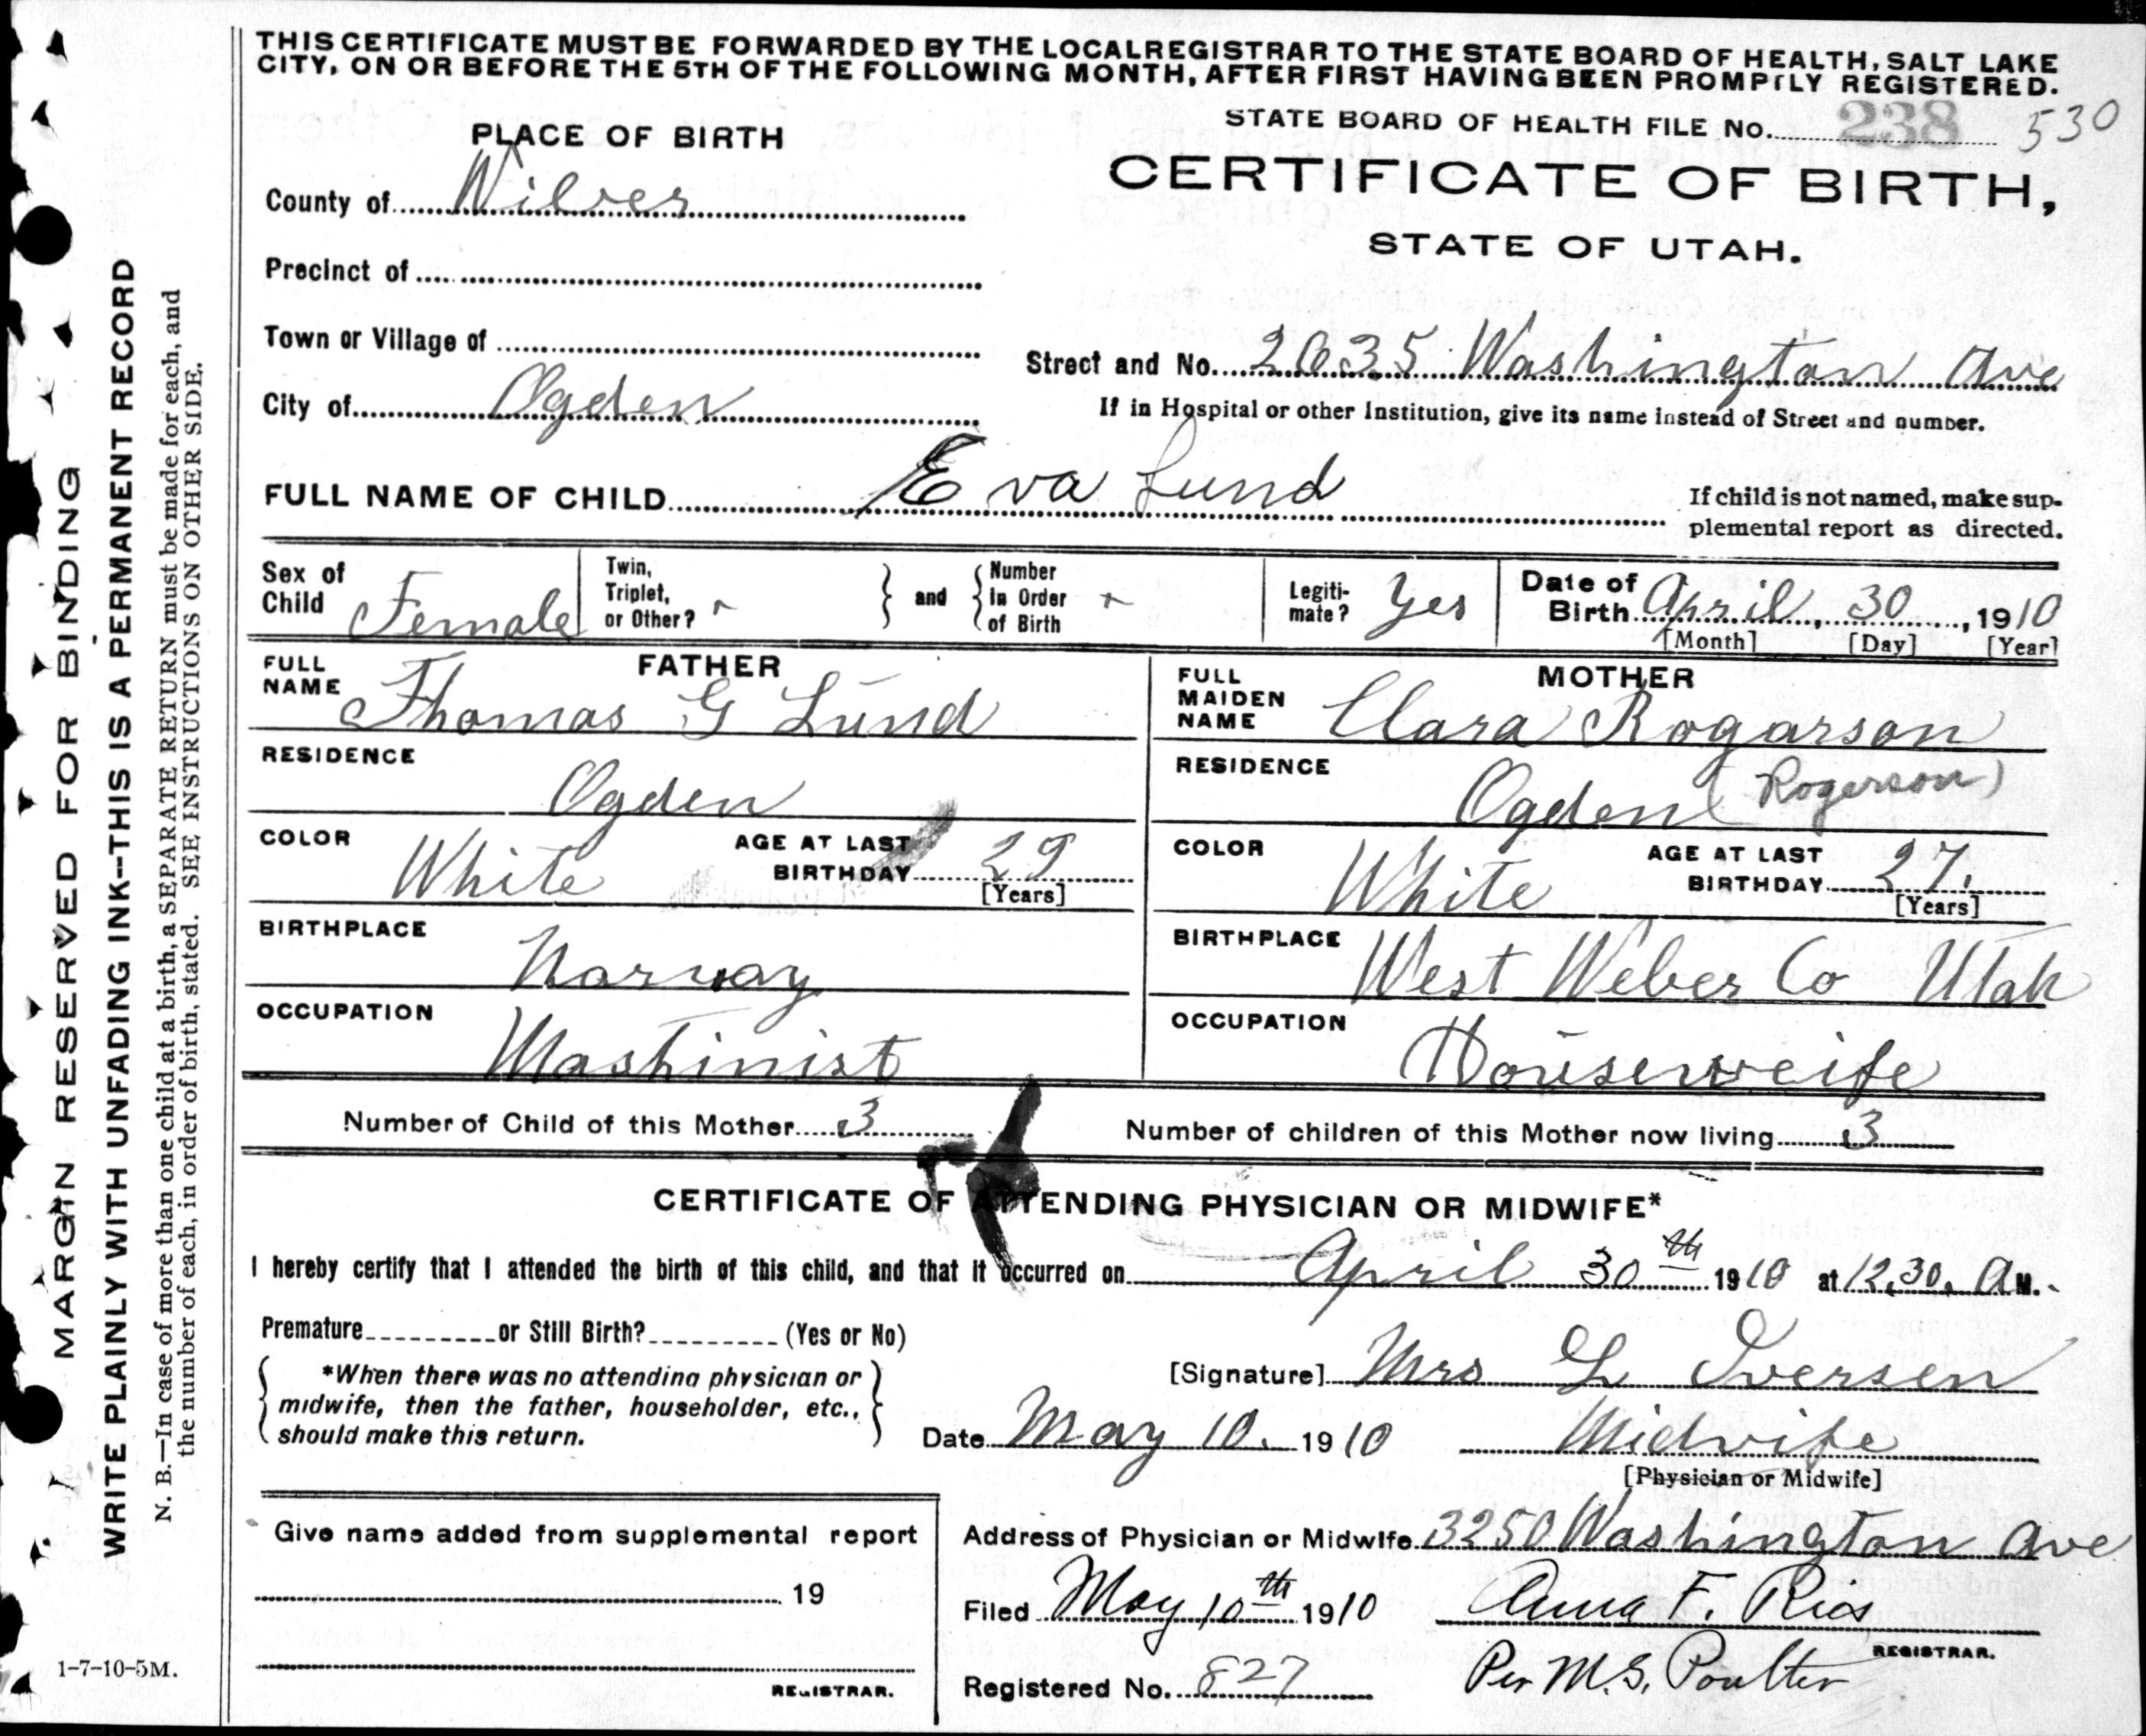 THIS CERTIFICATE MUST BE FORWARDED BY THE LOCAL REGISTRAR TO THE STATE BOARD OF HEALTH, SALT LAKE
CITY, ON OR BEFORE THE 5TH OF THE FOLLOWING MONTH, AFTER FIRST HAVING BEEN PROMPTLY REGISTERED.
STATE BOARD OF HEALTH FILE No. 238 530
PLACE OF BIRTH
CERTIFICATE OF BIRTH,
STATE OF UTAH.
County of
Precinct of
Town or Village of
Street and No. 2635 Washington Ave
City of Ogden
If in Hospital or other Institution, give its name instead of Street and number.
FULL NAME OF CHILD Eva Lund
If child is not named, make sup-
plemental report as directed.
Sex of Child Female
Twin, Triplet, or Other?
and
Number In Order of Birth
Legiti-mate? Yes
Date of Birth April, 30, 1910
[Month] [Day] [Year]
FATHER
FULL NAME Thomas G Lund
RESIDENCE
Ogden
COLOR White
AGE AT LAST BIRTHDAY 29
[Years]
BIRTHPLACE
Norway
OCCUPATION
Mashinist
MOTHER
FULL MAIDEN NAME Clara Rogarson
RESIDENCE
Ogden (Rogerson)
COLOR White
AGE AT LAST BIRTHDAY 27.
[Years]
BIRTHPLACE West Weber Co Utah
OCCUPATION
Houseweife
Number of Child of this Mother 3
Number of children of this Mother now living 3
CERTIFICATE OF ATTENDING PHYSICIAN OR MIDWIFE*
I hereby certify that I attended the birth of this child, and that it occurred on April 30th 1910 at 12,30, A M.
Premature or Still Birth? (Yes or No)
*When there was no attending physician or
midwife, then the father, householder, etc.,
should make this return.
[Signature] Mrs L Iversen
Date May 10. 1910 Midwife
[Physician or Midwife]
Give name added from supplemental report
19
REGISTRAR.
Address of Physician or Midwife 3250 Washington Ave
Filed May 10th 1910 Anna F. Rios
REGISTRAR.
Registered No. 827 Per M. S. Poulter
MARGIN RESERVED FOR BINDING
WRITE PLAINLY WITH UNFADING INK--THIS IS A PERMANENT RECORD
N. B.—In case of more than one child at a birth, a SEPARATE RETURN must be made for each, and
the number of each, in order of birth, stated. SEE INSTRUCTIONS ON OTHER SIDE.
1-7-10-5M.